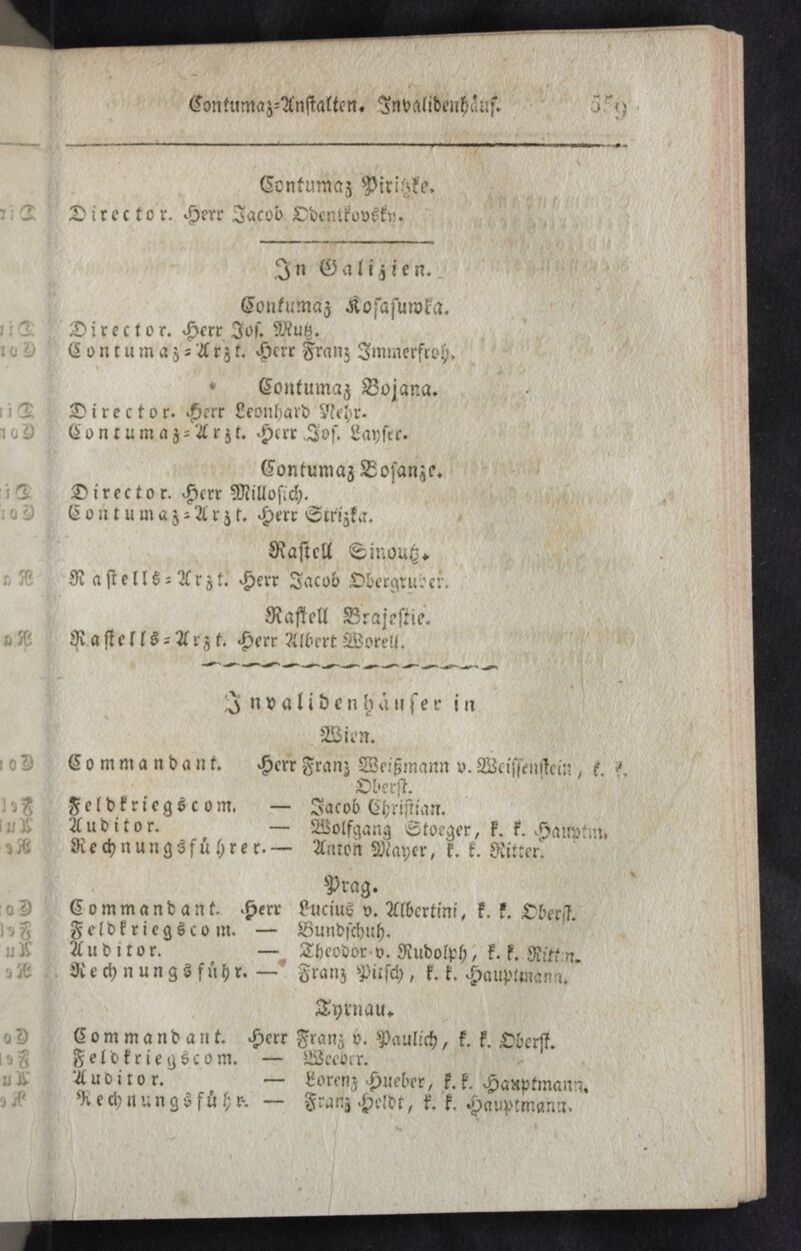 Contumaz-Anstalten. Invalidenhäus. 559
Contumaz Pirizke.
Director. Herr Jacob Obentkovsky.
In Galizien.
Contumaz Kosasuwka.
Director. Herr Jos. Mutz.
Contumaz-Arzt. Herr Franz Immerfroh.
Contumaz Bojana.
Director. Herr Leonhard Nehr.
Contumaz-Arzt. Herr Jos. Layser.
Contumaz Bosanze.
Director. Herr Millosich.
Contumaz-Arzt. Herr Strizka.
Rastell Sinoutz.
Rastells-Arzt. Herr Jacob Obergruber.
Rastell Brajestie.
Rastells-Arzt. Herr Albert Worell.
Invalidenhäuser in
Wien.
Commandant. Herr Franz Weißmann v. Weissenstein, k. k.
Oberst.
Feldkriegscom. — Jacob Christian.
Auditor. — Wolfgang Stoeger, k. k. Hauptm.
Rechnungsführer. — Anton Mayer, k. k. Ritter.
Prag.
Commandant. Herr Lucius v. Albertini, k. k. Oberst.
Feldkriegscom. — Bundschuh.
Auditor. — Theodor v. Rudolph, k. k. Rittm.
Rechnungsführ. — Franz Pitsch, k. k. Hauptmann.
Tyrnau.
Commandant. Herr Franz v. Paulich, k. k. Oberst.
Feldkriegscom. — Weeber.
Auditor. — Lorenz Hueber, k. k. Hauptmann.
Rechnungsführ. — Franz Heldt, k. k. Hauptmann.